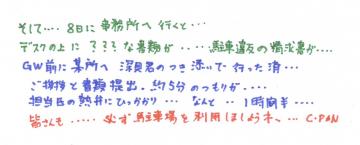 そして‥‥ 8日に事務所へ行くと‥‥
デスクの上に ???な書類が‥‥‥駐車違反の
GW前に某所へ 深見君のつき添いで 行った済‥‥
ご挨拶と書類提出、約5分のつもりが‥‥
担当氏の熱弁にひっかかり‥‥ なんと‥‥1時間半‥‥‥
皆さんも‥‥‥必ず駐車場を利用しましょうネ〜 ‥‥ C・PAN